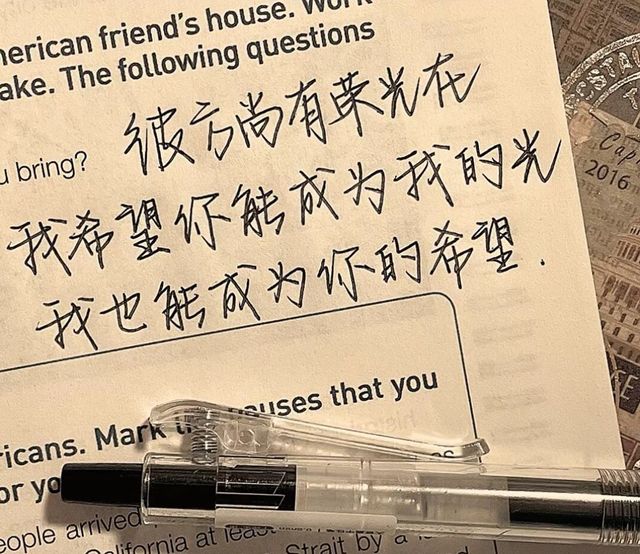 merican friend's house. Work
ake. The following questions
彼方尚有荣光在
u bring?
我希望你能成为我的光
我也能成为你的希望.
Cap
2016
ricans. Mark the houses that you
or yo
eople arrived,
California at least
Strait by a